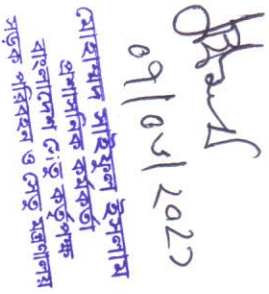 ০৭/০৮/২০২৩
মোহাম্মদ সাইফুল ইসলাম
প্রশাসনিক কর্মকর্তা
বাংলাদেশ সেতু কর্তৃপক্ষ
সড়ক পরিবহন ও সেতু মন্ত্রণালয়